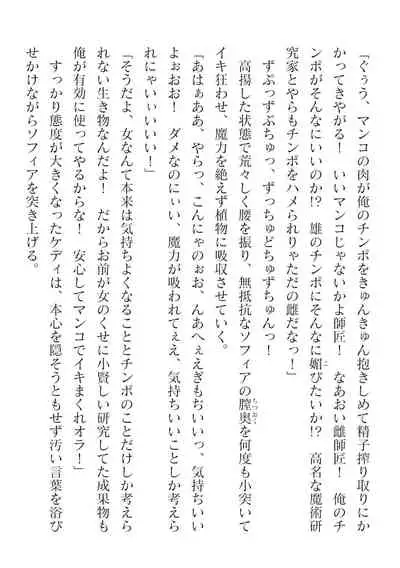 「ぐぅう、マンコの肉が俺のチンポをきゅんきゅん抱きしめて精子搾り取りにか
かってきやがる！　いいマンコじゃないかよ師匠！　なあおい雌師匠！　俺のチ
ンポがそんなにいいのか!?　雄のチンポにそんなに媚びたいか!?　高名な魔術研
究家とやらもチンポをハメられりゃただの雌だなっ！」
ずぷっずぷちゅっ、ずっちゅどちゅずちゅんっ！
高揚した状態で荒々しく腰を振り、無抵抗なソフィアの膣奥を何度も小突いて
イキ狂わせ、魔力を絶えず植物に吸収させていく。
「あはぁああ、やらっ、こんにゃのぉお、んあへぇえぎもぢいいっ、気持ちいい
よぉおお！　ダメなのにぃい、魔力が吸われてぇえ、気持ちいいことしか考えら
れにゃいぃいいい！」
「そうだよ、女なんて本来は気持ちよくなることとチンポのことだけしか考えら
れない生き物なんだよ！　だからお前が女のくせに小賢しい研究してた成果物も
俺が有効に使ってやるからな！　安心してマンコでイキまくれオラ！」
すっかり態度が大きくなったケディは、本心を隠そうともせず汚い言葉を浴び
せかけながらソフィアを突き上げる。